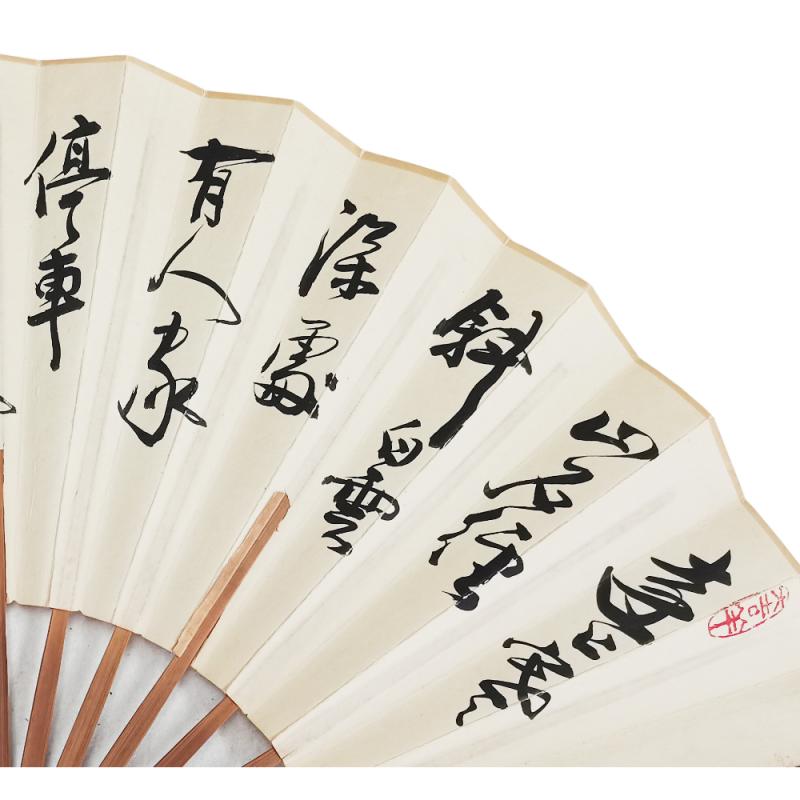 遠上寒
山石徑
斜白雲
深處
有人家
停車